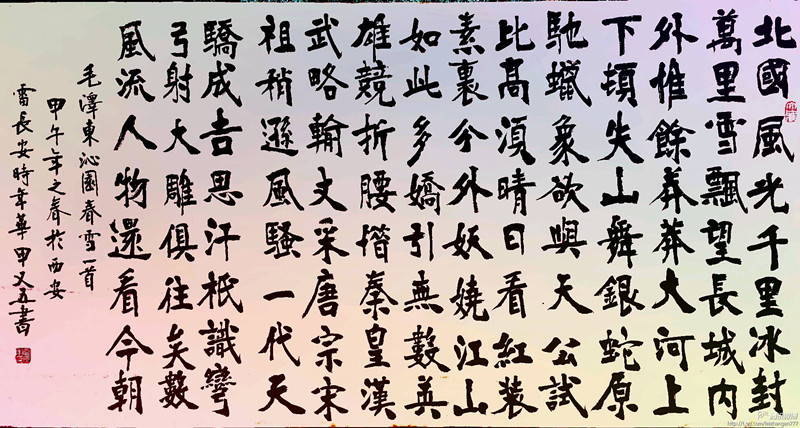 北國風光千里冰封
萬里雪飄望長城內
外惟餘莽莽大河上
下頓失山舞銀蛇原
馳蠟象欲與天公試
比高須晴日看紅裝
素裹分外妖嬈江山
如此多嬌引無數英
雄競折腰惜秦皇漢
武略輸文采唐宗宋
祖稍遜風騷一代天
驕成吉思汗祇識彎
弓射大雕俱往矣數
風流人物還看今朝
毛澤東沁園春雪一首
甲午年之春於西安
雷長安時年華甲又五書